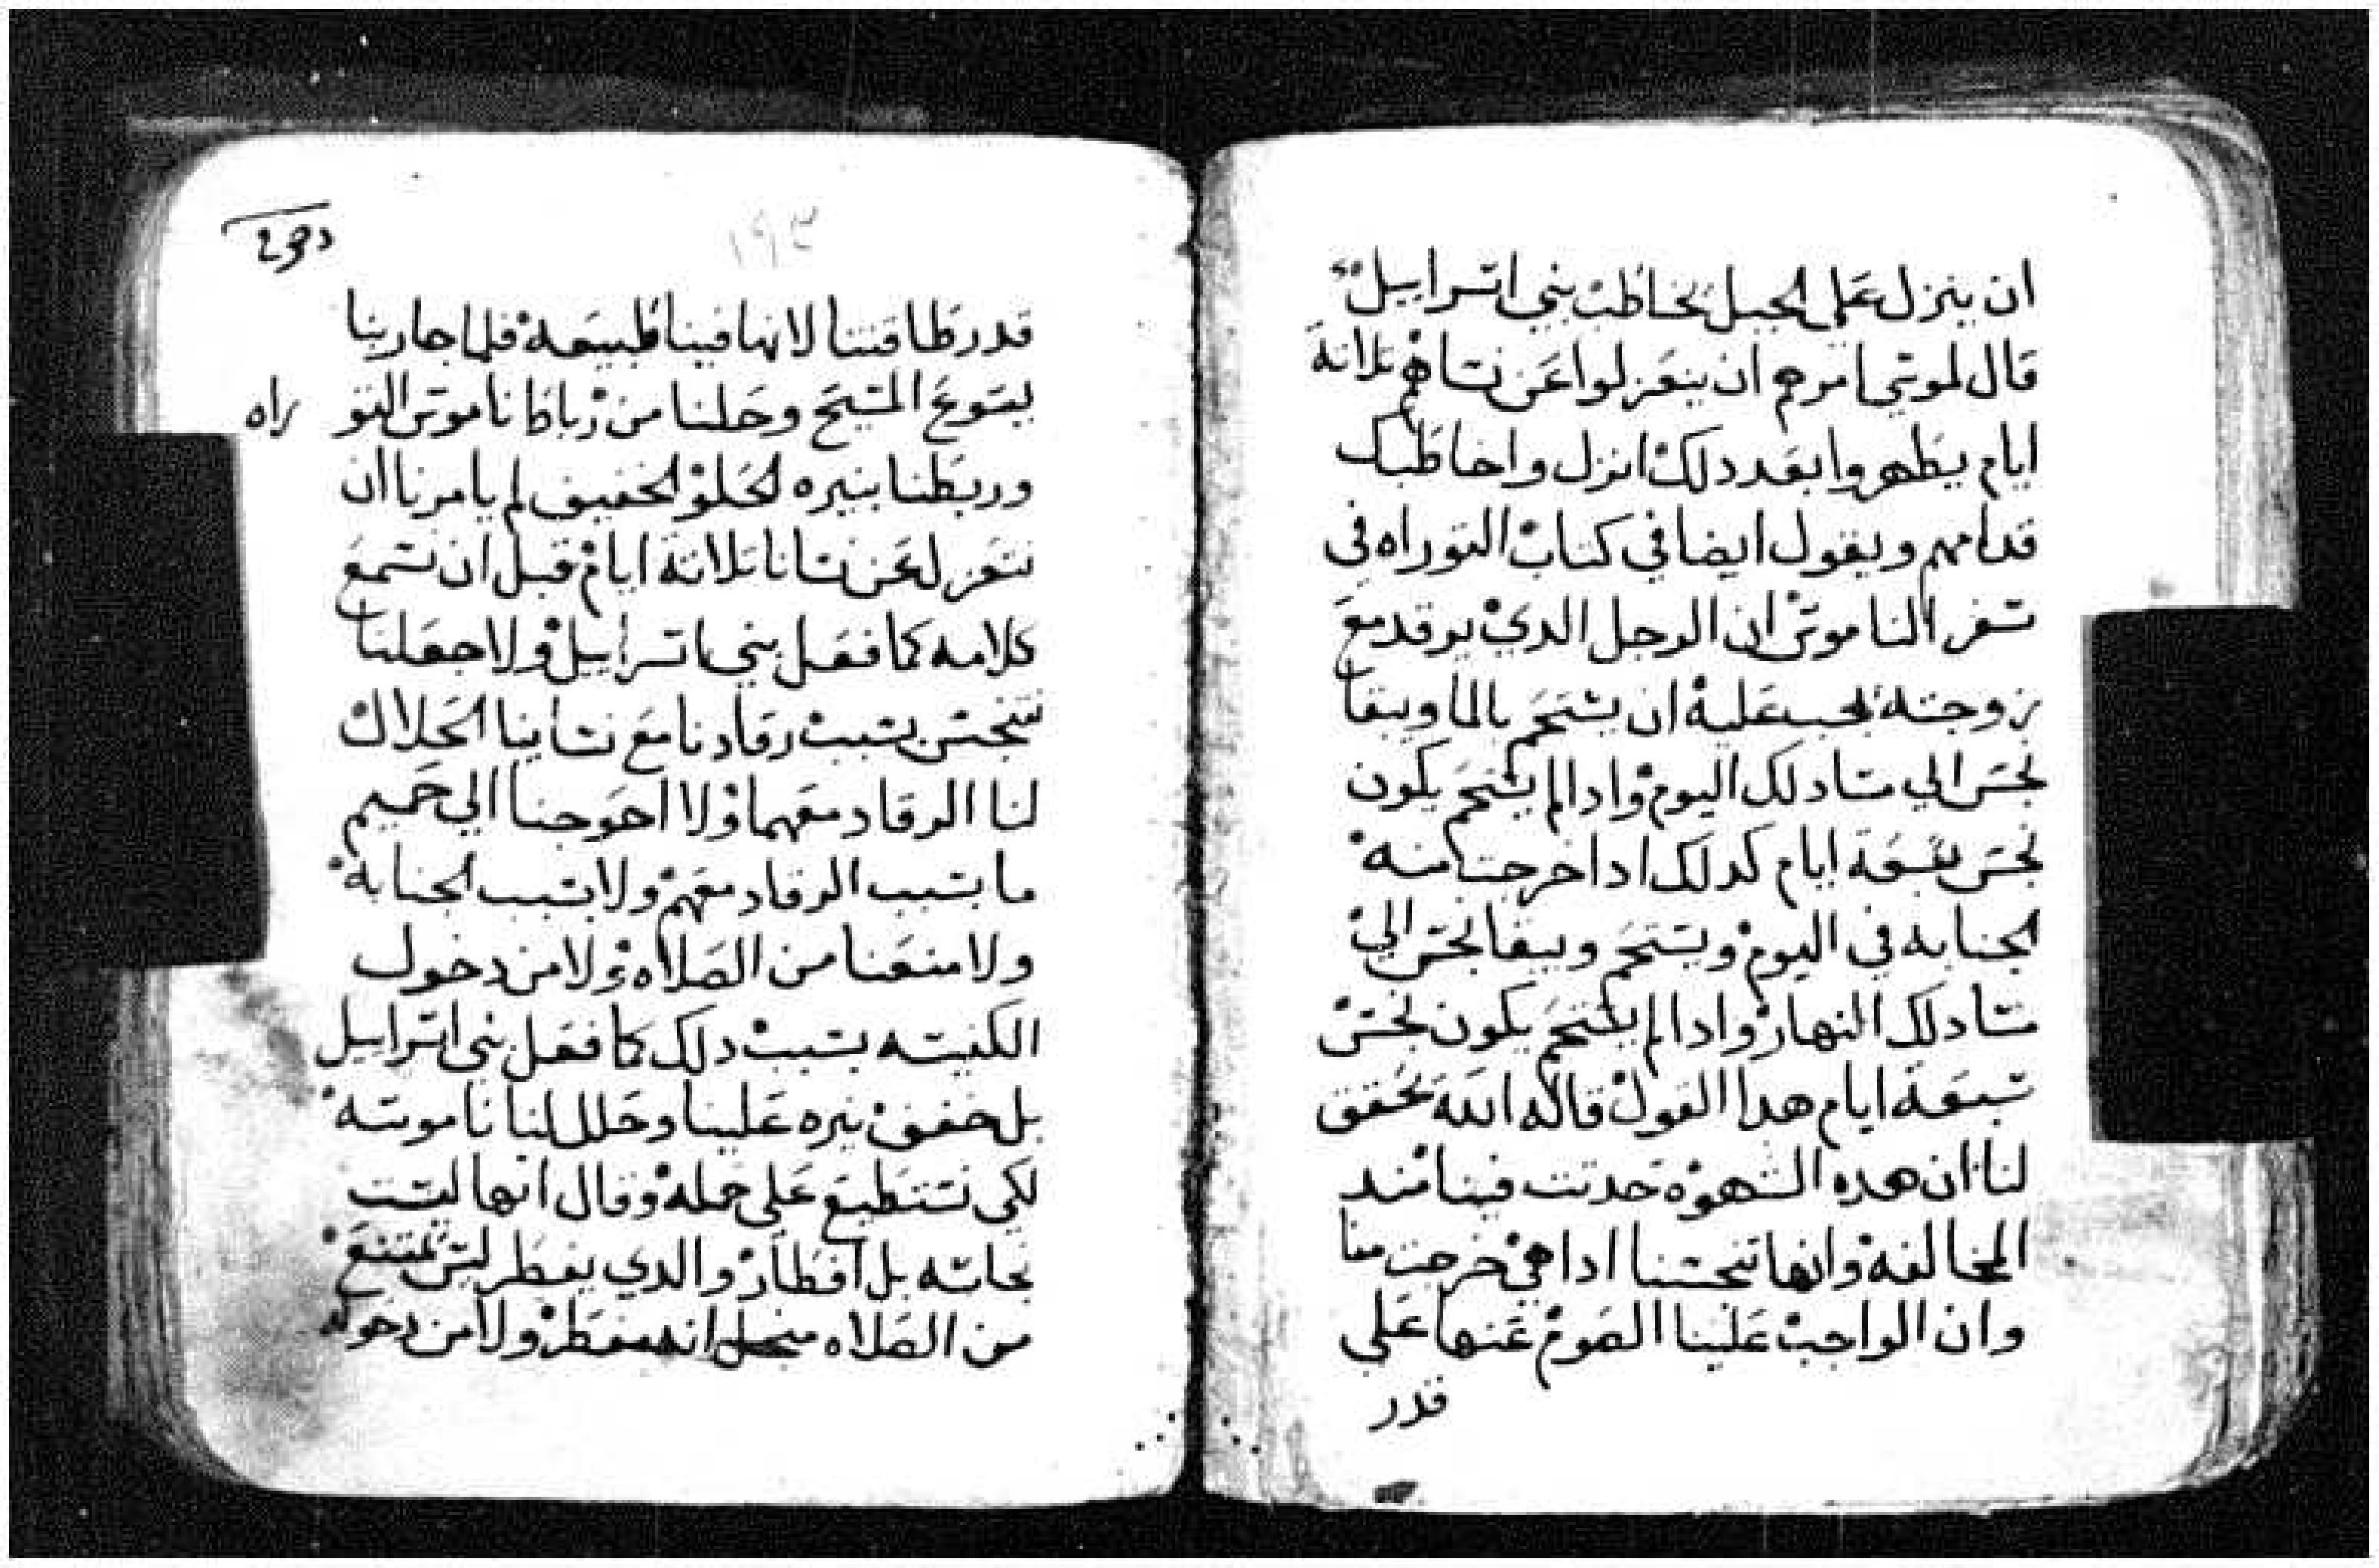 ان ينزل علي الجبل يخاطب بني اسراييل
قال لموسي امرهم ان ينعزلوا عن نساهم تلاتة
ايام يطهروا بعد دلك انزل واخاطبك
قدامهم ويقول ايضا في كتاب التوراه في
سفر الناموس ان الرجل الدي يرقد مع
زوجته يجب عليه ان يستحم بالما ويبقا
نجس الي مسا دلك اليوم وادا لم يستحم يكون
نجس سبعة ايام كدلك ادا خرجت منه
الجنابه في اليوم ويستحم ويبقا نجس الي
مسا دلك النهار وادا لم يستحم يكون نجس
سبعة ايام هدا القول قاله الله يحقق
لنا ان هده الشهوه حدتت فينا مند
المخالفه وانها تنجسنا ادا هي خرجت منا
وان الواجب علينا الصوم عنها علي
قدر
١٩٣
قدر طاقتنا لانها فينا طبيعه فلما جا ربنا
يسوع المسيح وحلنا من رباط ناموس التوراه
وربطنا بنيره الحلو الخفيف لم يامرنا ان
ننعزل عن نسانا تلاتة ايام قبل ان نسمع
كلامه كما فعل بني اسراييل ولا جعلنا
نتنجس بسبب رقادنا مع نساينا الحلال
لنا الرقاد معهما ولا احوجنا الي حميم
ما بسبب الرقاد معهم ولا بسبب الجنابه
ولا منعنا من الصلاه ولا من دخول
الكنيسه بسبب دلك كما فعل بني اسراييل
بل خفف نيره علينا وحلل لنا ناموسه
لكي نستطيع علي حمله وقال انها ليست
نجاسه بل افطار والدي يفطر ليس يمتنع
من الصلاه منجل انه مفطر ولا من دخوله